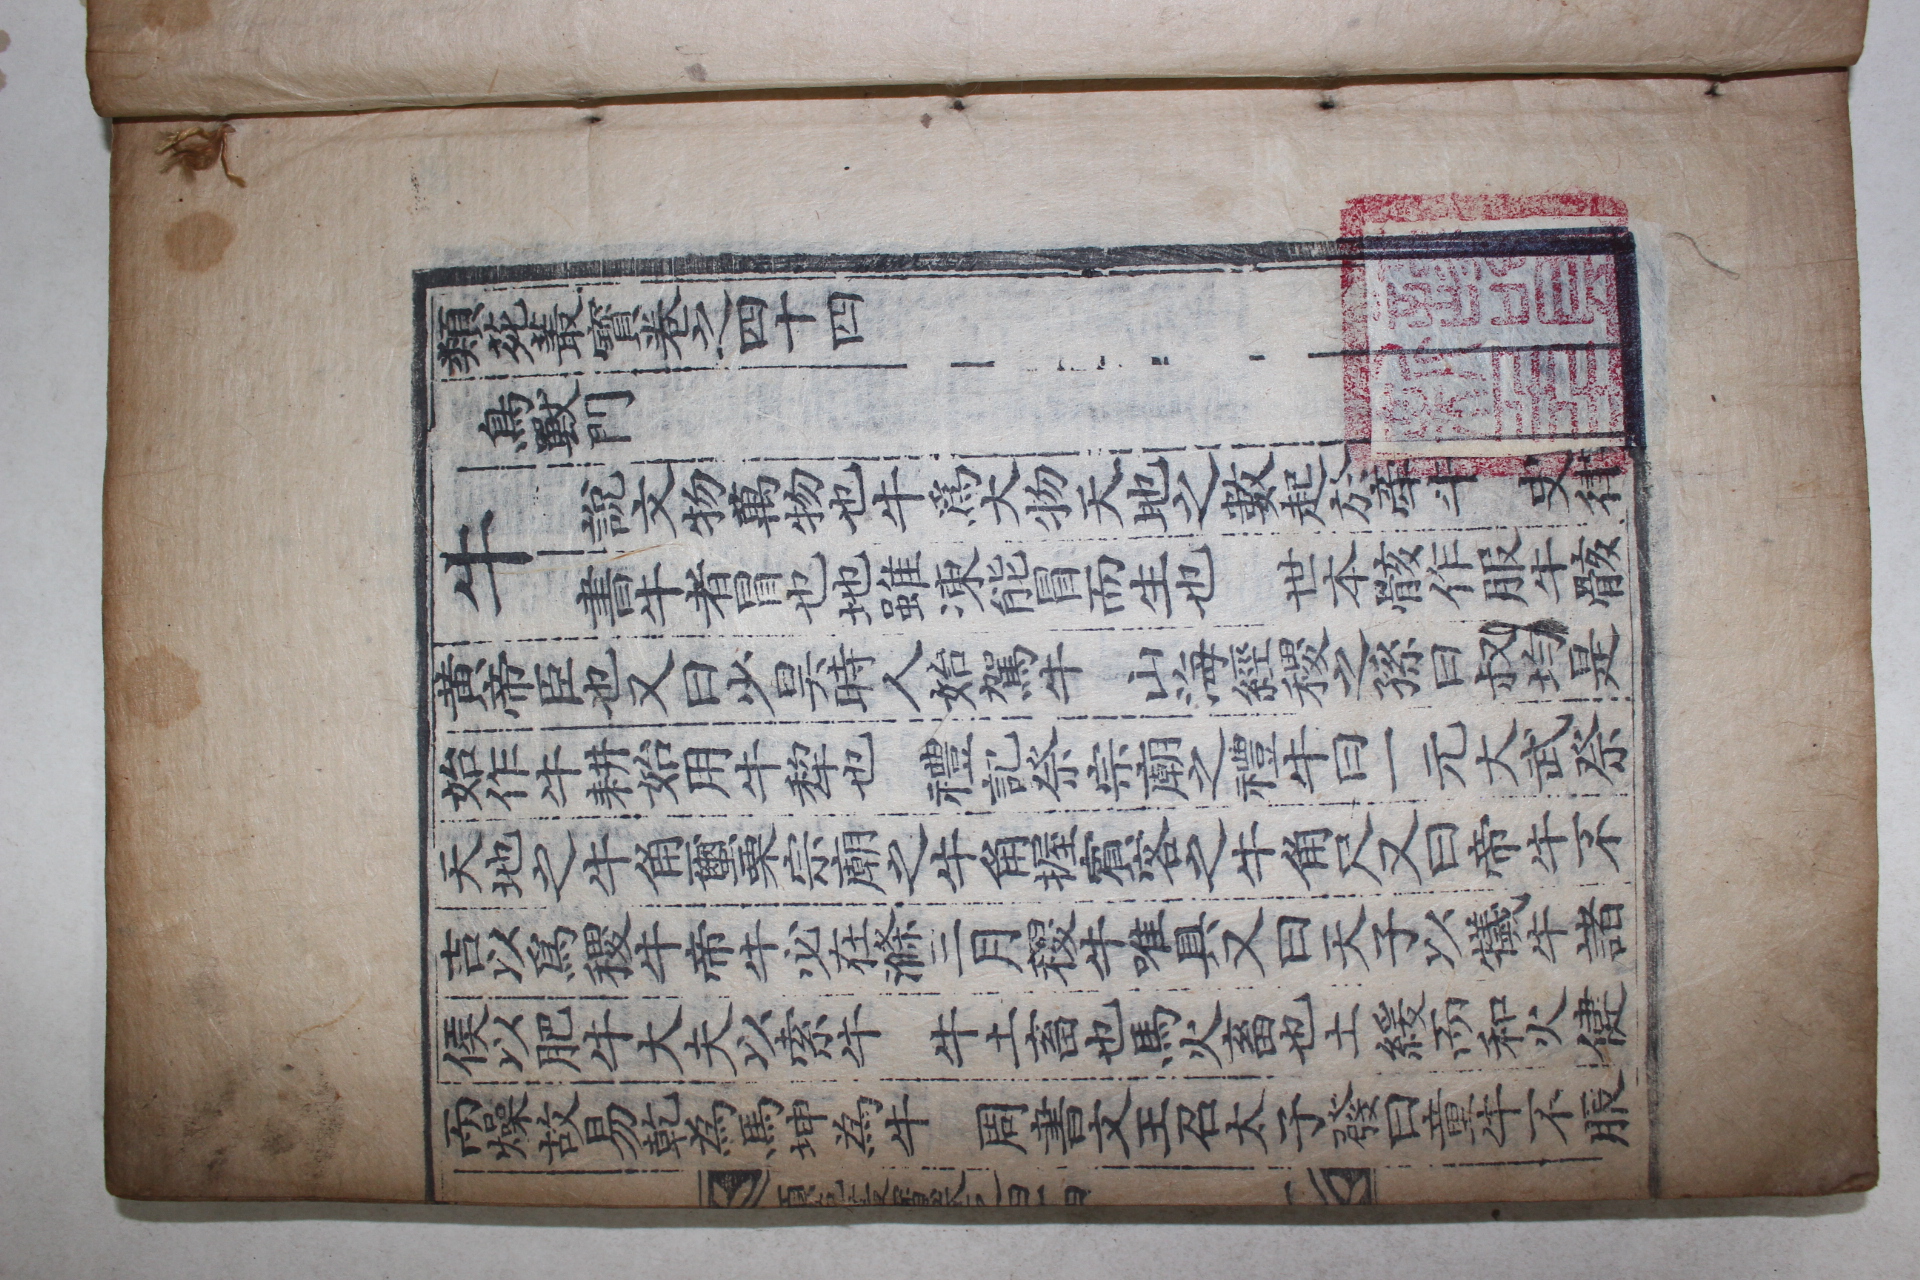 類苑叢寶卷之四十四
鳥獸門
牛
說文物萬物也牛爲大物天地之數起於牽牛 史律
書牛者冒也地雖凍能冒而生也 世本骸作服牛骸
黃帝臣也又曰少昊時人始駕牛 山海經稷之孫曰叔均是
始作牛耕始用牛犂也 禮記祭宗廟之禮牛曰一元大武祭
天地之牛角璽栗宗廟之牛角握賓客之牛角尺又曰帝牛不
吉以爲稷牛帝牛必在滌三月稷牛唯具又曰天子以犧牛諸
侯以肥牛大夫以索牛 牛土畜也馬火畜也土緩而和火健
而燥故易乾為馬坤為牛 周書文王召太子發曰童牛不服